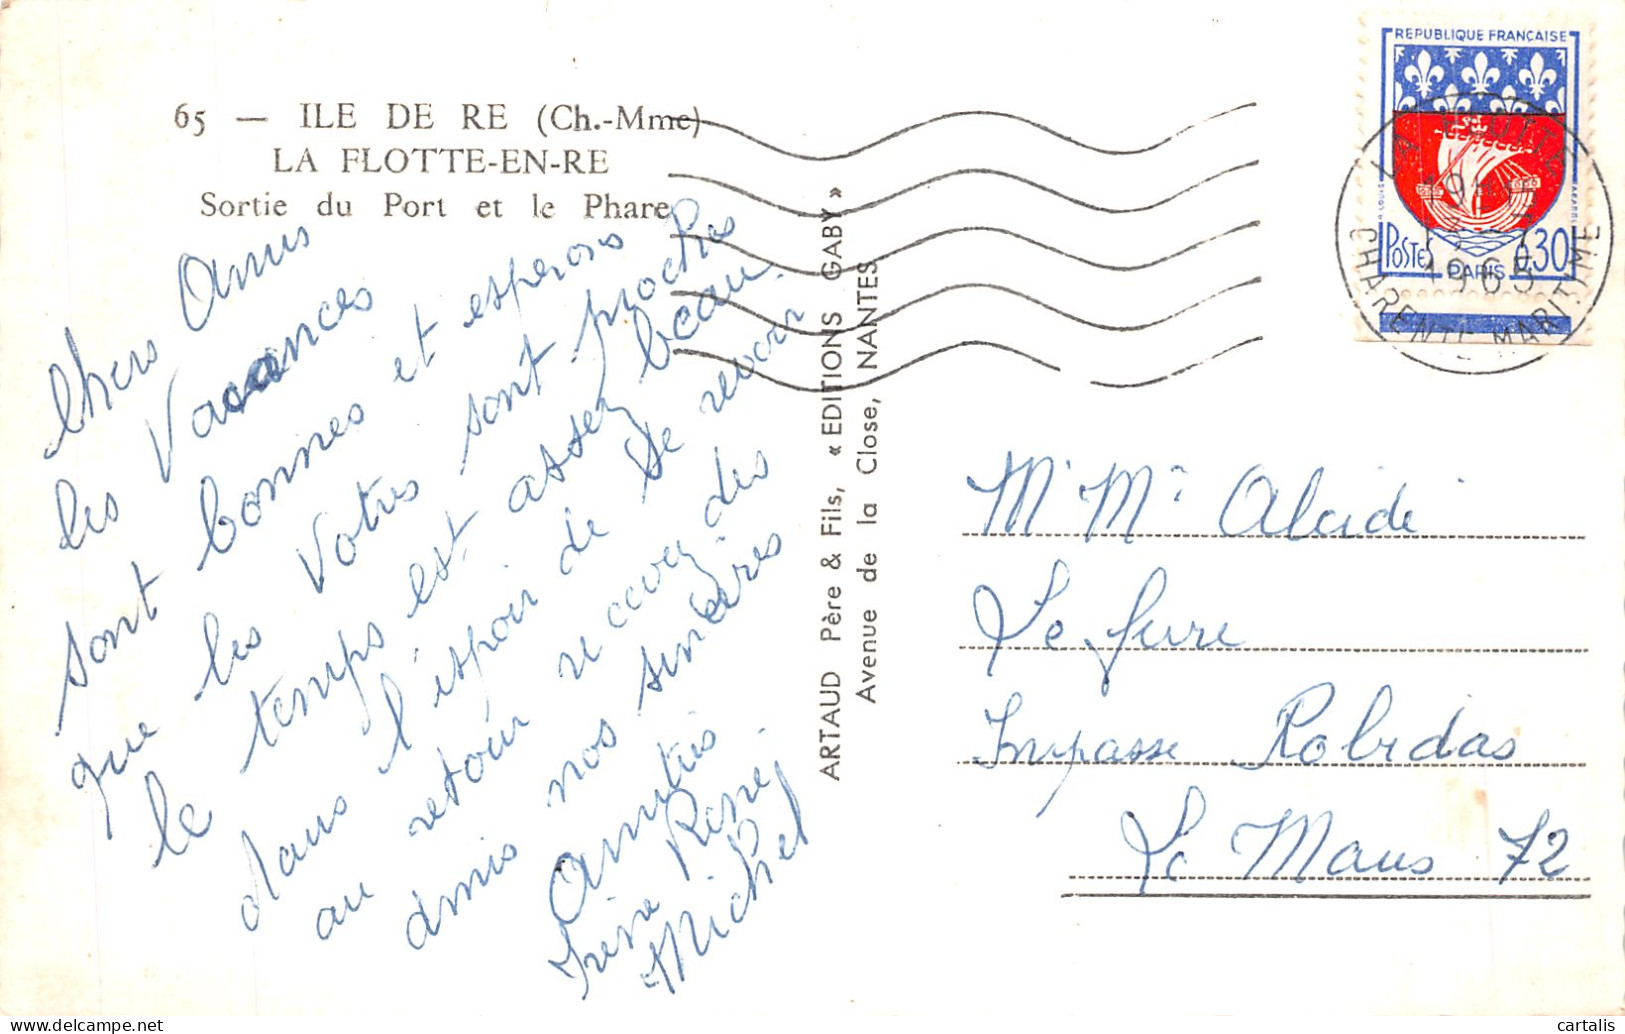 65 — ILE DE RE (Ch.-Mme)
LA FLOTTE-EN-RE
Sortie du Port et le Phare
Chers Amis
les Vacances
sont bonnes et esperons
que les Votres sont proches
le temps est assez beau.
dans l'espoir de se revoir
au retour recevez des
amis nos sincères
Amitiés
Irène René
Michel
ARTAUD Père & Fils, « EDITIONS GABY »
Avenue de la Close, NANTES
REPUBLIQUE FRANÇAISE
POSTES 0,30
PARIS
LA FLOTTE
1965
CHARENTE MARITIME
Mr Me Alcide
Le fure
Impasse Robidas
Le Mans 72
cartalis